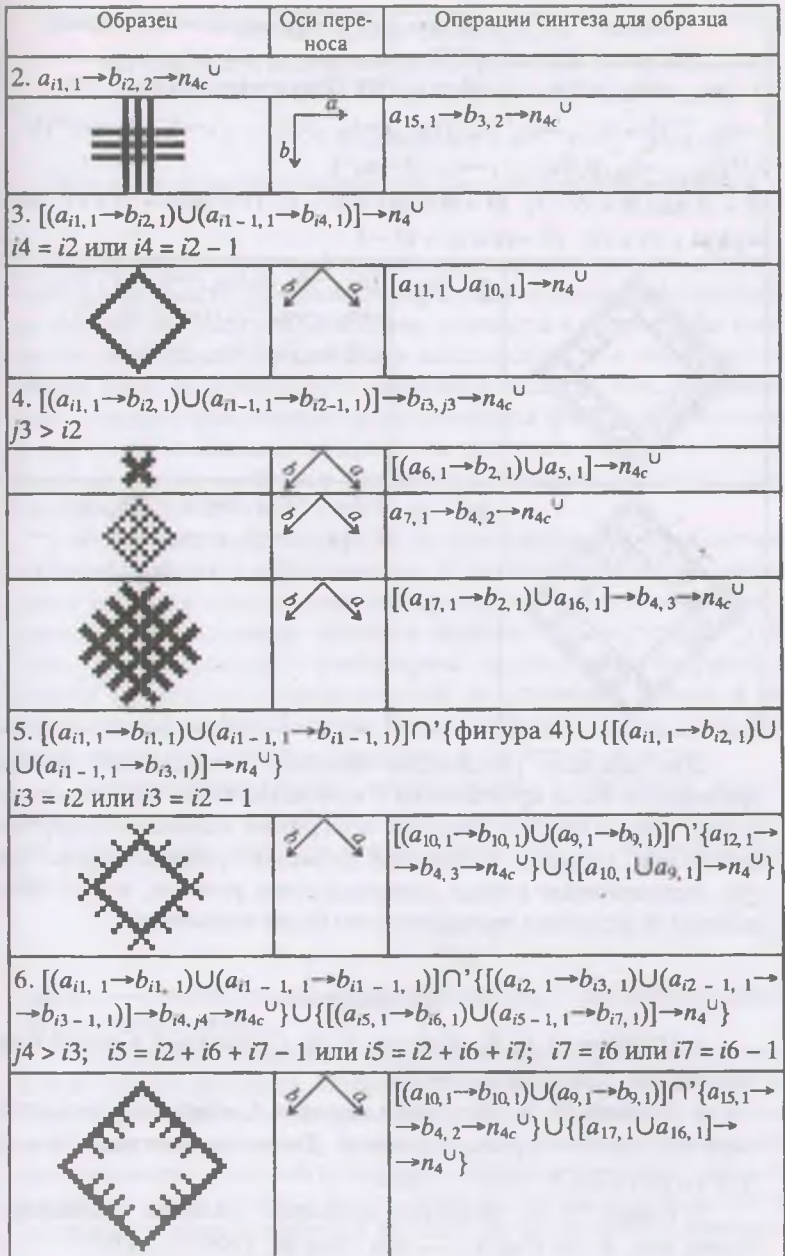 Образец
Оси пере-
носа
Операции синтеза для образца
2. a_{i1, 1}→b_{i2, 2}→n_{4c}^∪
a
b
a_{15, 1}→b_{3, 2}→n_{4c}^∪
3. [(a_{i1, 1}→b_{i2, 1})∪(a_{i1-1, 1}→b_{i4, 1})]→n_4^∪
i4 = i2 или i4 = i2 − 1
b a
[a_{11, 1}∪a_{10, 1}]→n_4^∪
4. [(a_{i1, 1}→b_{i2, 1})∪(a_{i1-1, 1}→b_{i2-1, 1})]→b_{i3, j3}→n_{4c}^∪
j3 > i2
b a
[(a_{6, 1}→b_{2, 1})∪a_{5, 1}]→n_{4c}^∪
b a
a_{7, 1}→b_{4, 2}→n_{4c}^∪
b a
[(a_{17, 1}→b_{2, 1})∪a_{16, 1}]→b_{4, 3}→n_{4c}^∪
5. [(a_{i1, 1}→b_{i1, 1})∪(a_{i1 - 1, 1}→b_{i1 - 1, 1})]∩’{фигура 4}∪{[(a_{i1, 1}→b_{i2, 1})∪
∪(a_{i1 - 1, 1}→b_{i3, 1})]→n_4^∪}
i3 = i2 или i3 = i2 − 1
b a
[(a_{10, 1}→b_{10, 1})∪(a_{9, 1}→b_{9, 1})]∩’{a_{12, 1}→
→b_{4, 3}→n_{4c}^∪}∪{[a_{10, 1}∪a_{9, 1}]→n_4^∪}
6. [(a_{i1, 1}→b_{i1, 1})∪(a_{i1 - 1, 1}→b_{i1 - 1, 1})]∩’{[(a_{i2, 1}→b_{i3, 1})∪(a_{i2 - 1, 1}→
→b_{i3 - 1, 1})]→b_{i4, j4}→n_{4c}^∪}∪{[(a_{i5, 1}→b_{i6, 1})∪(a_{i5 - 1, 1}→b_{i7, 1})]→n_4^∪}
j4 > i3; i5 = i2 + i6 + i7 − 1 или i5 = i2 + i6 + i7; i7 = i6 или i7 = i6 − 1
b a
[(a_{10, 1}→b_{10, 1})∪(a_{9, 1}→b_{9, 1})]∩’{a_{15, 1}→
→b_{4, 2}→n_{4c}^∪}∪{[a_{17, 1}∪a_{16, 1}]→
→n_4^∪}